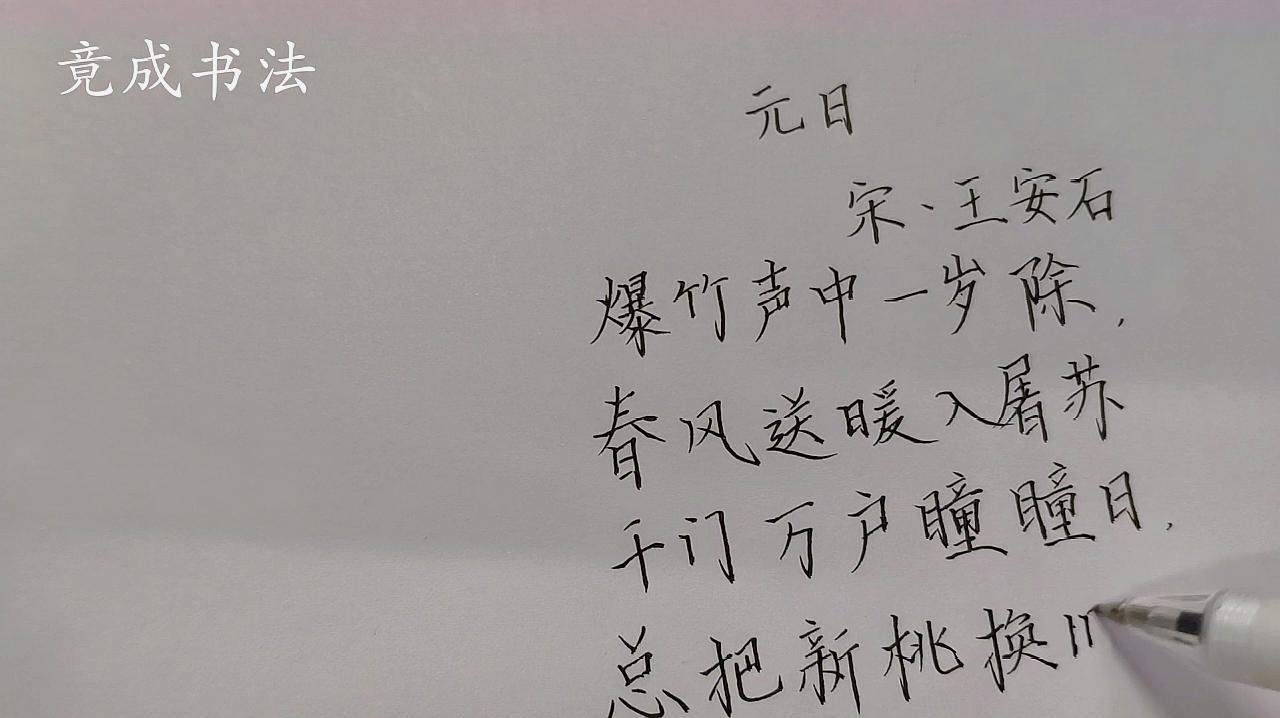 竟成书法
元日
宋、王安石
爆竹声中一岁除,
春风送暖入屠苏
千门万户瞳瞳日,
总把新桃换